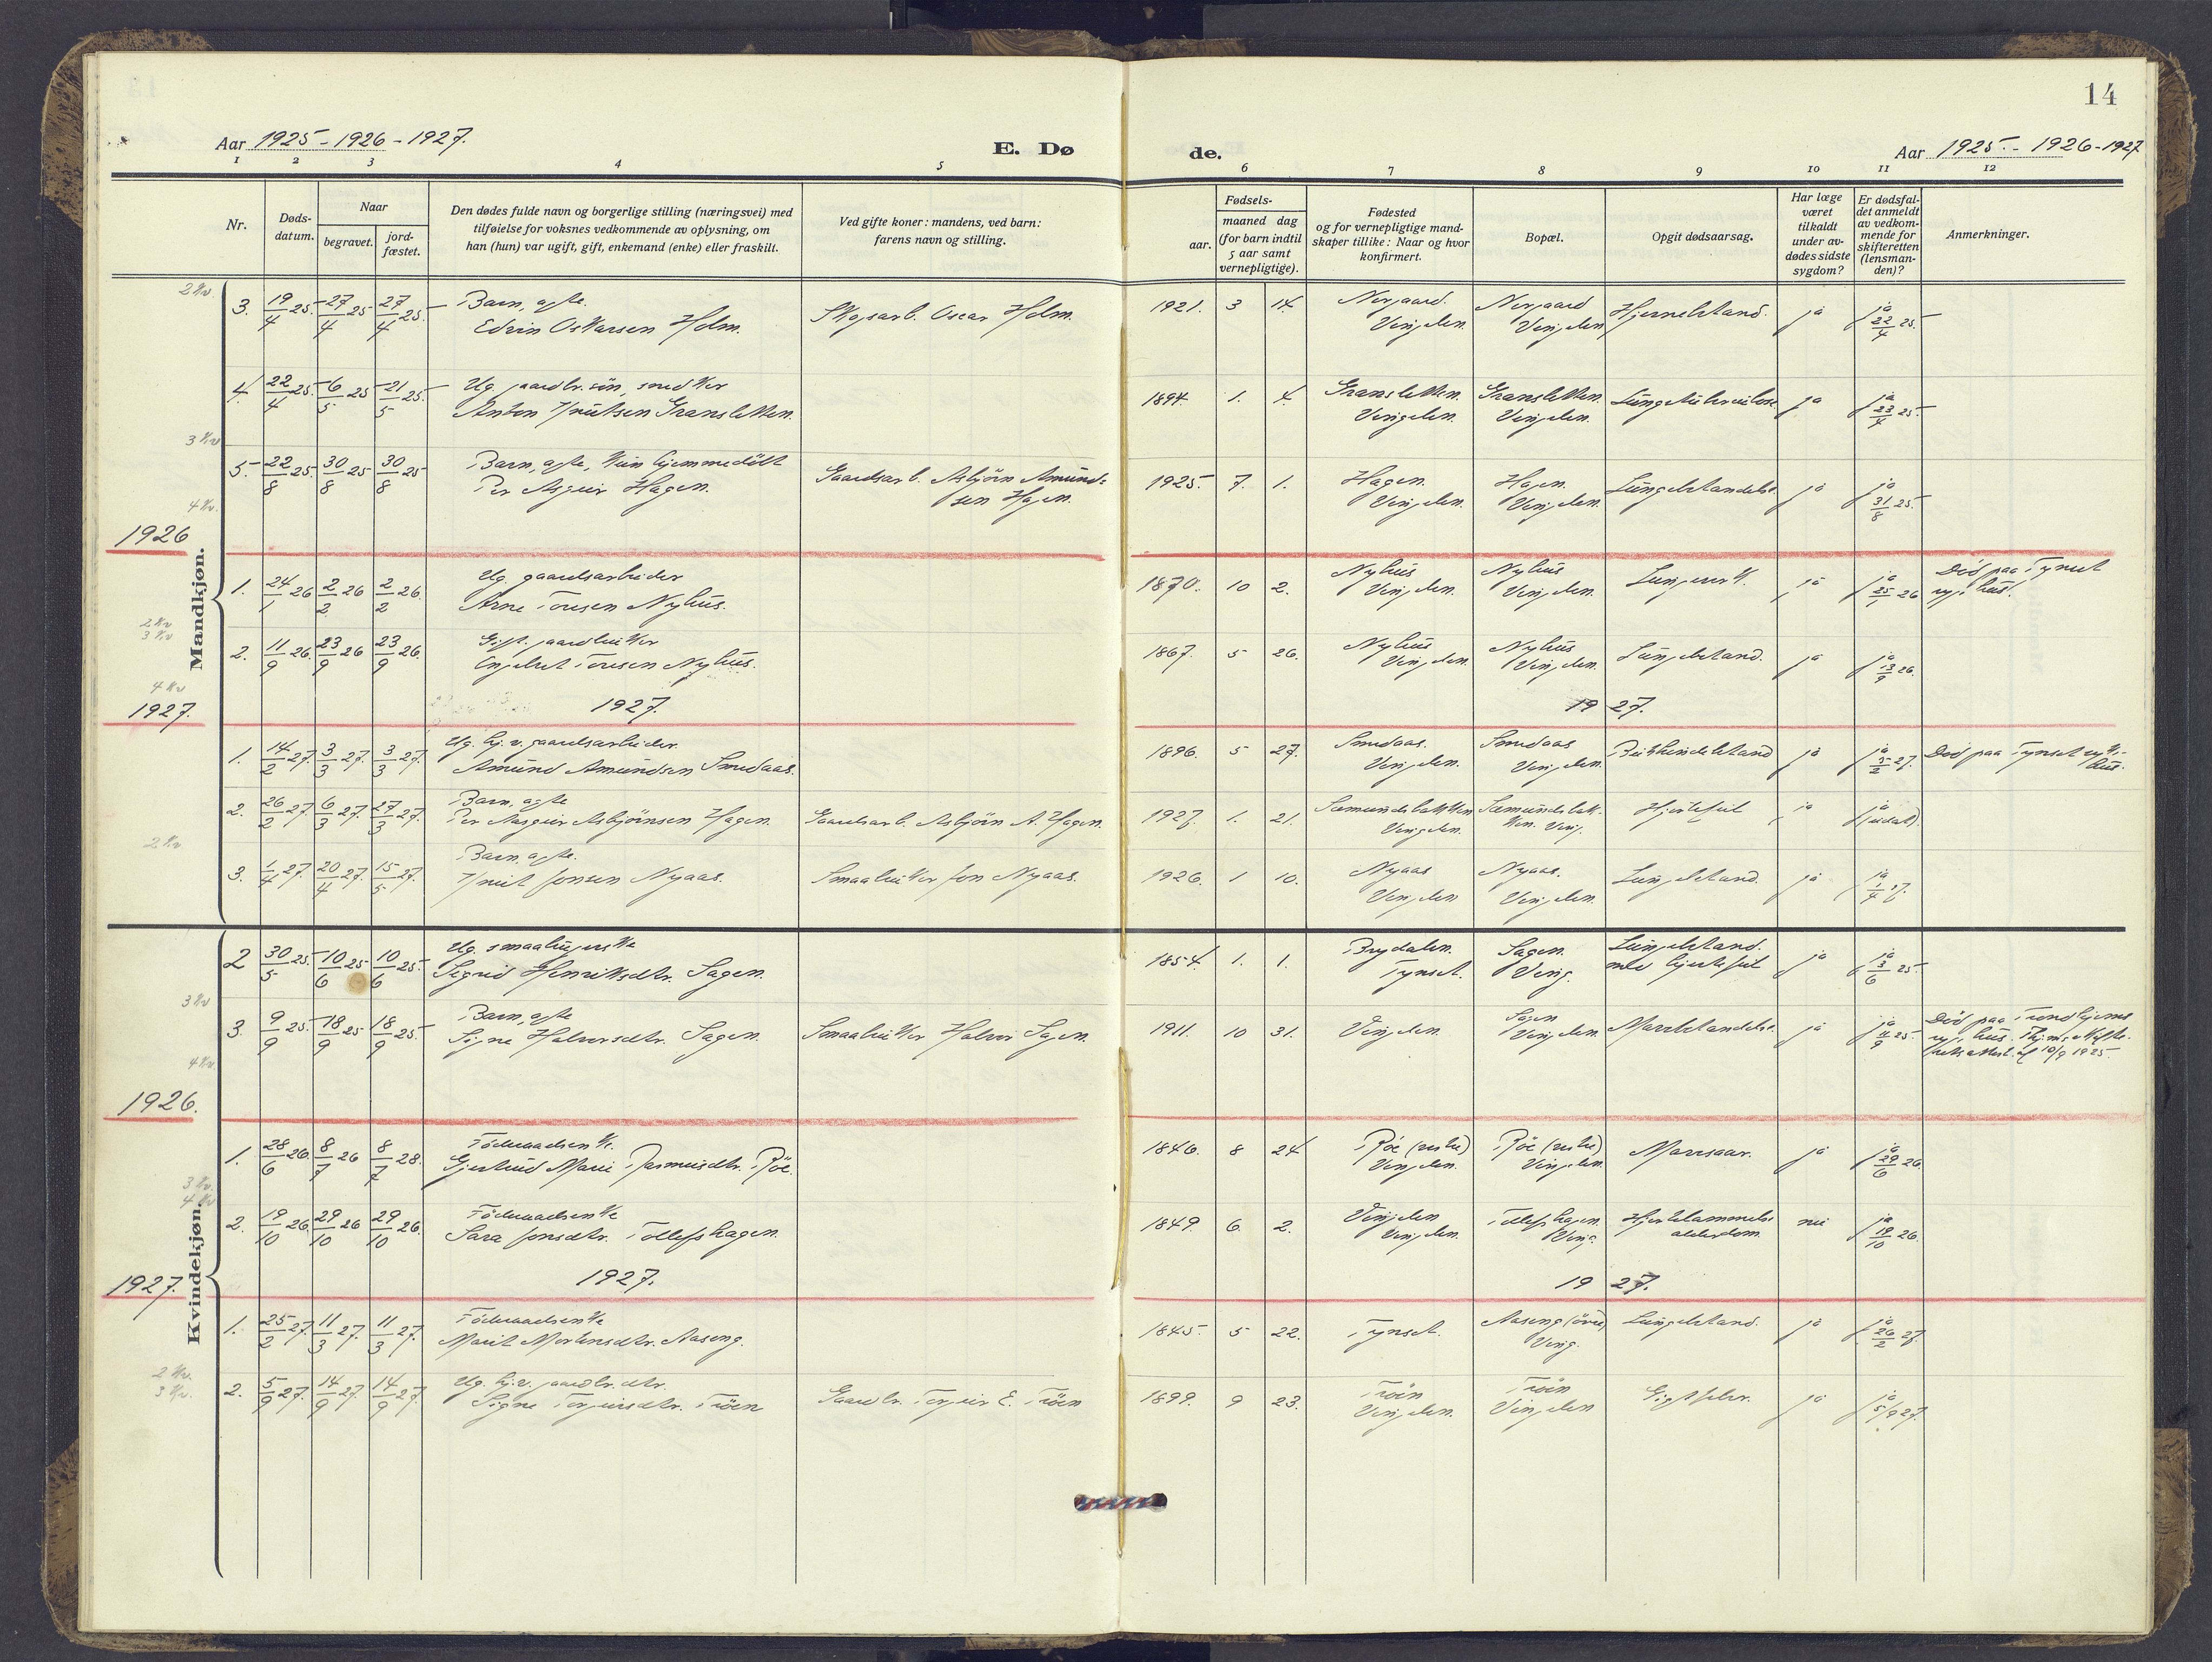 14
Aar 1925 - 1926 - 1927.
E. Dø
de.
Aar 1925. - 1926 - 1927
1 2 3 4 5
6 7 8 9 10 11 12
Nr.
Døds-
datum.
Naar
begravet.
jord-
fæstet.
Den dødes fulde navn og borgerlige stilling (næringsvei) med
tilføielse for voksnes vedkommende av oplysning, om
han (hun) var ugift, gift, enkemand (enke) eller fraskilt.
Ved gifte koner: mandens, ved barn:
farens navn og stilling.
Fødsels-
aar.
maaned dag
(for barn indtil
5 aar samt
vernepligtige).
Fødested
og for vernepligtige mand-
skaper tillike: Naar og hvor
konfirmert.
Bopæl.
Opgit dødsaarsag.
Har læge
været
tilkaldt
under av-
dødes sidste
sygdom?
Er dødsfal-
det anmeldt
av vedkom-
mende for
skifteretten
(lensman-
den)?
Anmerkninger.
Mandkjøn.
2 Kv
3. 19/4 25. 27/4 25 27/4 25. Barn, ægte.
Edvin Oskarsen Holm. Skogsarb. Oscar Holm. 1921. 3 14. Norgaard.
Vingelen. Norgaard
Vingelen Hjernebetænd. ja ja
22/4 25.
4. 22/4 25. 6/5 25 21/5 25. Ug. gaardbr. søn, snedker
Anton Knutsen Gransletten. 1894. 1. 4. Gransletten.
Vingelen. Gransletten.
Vingelen. Lungetuberculose ja ja
23/4 25.
3 Kv
5. 22/8 25. 30/8 25 30/8 25 Barn, ægte, kun hjemmedøbt
Per Asgeir Hagen. Gaardsarb. Asbjörn Amund-
sen Hagen. 1925. 7. 1. Hagen.
Vingelen. Hagen.
Vingelen. Lungebetændelse. ja ja
31/8 25.
4 Kv.
1926
1. 24/1 26 2/2 26 2/2 26. Ug. gaardsarbeider
Arne Tousen Nyhus. 1870. 10 2. Nyhus
Vingelen. Nyhus
Vingelen. ja ja
25/1 26 Död paa Tynset
sygehus.
2 Kv
3 Kv
2. 11/9 26. 23/9 26 23/9 26. Gift. gaardbruker
Engebret Tousen Nyhus. 1867. 5 26. Nyhus
Vingelen. Nyhus
Vingelen. Lungebetænd. ja ja
13/9 26.
4 Kv
1927. 1927. 1927.
1. 14/2 27. 3/3 27. 3/3 27. Ug. hj.v. gaardsarbeider.
Amund Amundsen Smedaas. 1896. 5 27. Smedaas.
Vingelen. Smedaas
Vingelen. Bukhindebetænd ja ja Död paa Tynset syke-
hus.
2. 26/2 27. 6/3 27. 27/3 27. Barn, ægte
Per Aasgeir Asbjörnsen Hagen. Gaardsarb. Asbjörn A. Hagen. 1927. 1. 21. Sæmundsbakken
Vingelen. Sæmundsbak-
ken. Ving. Hjertefeil ja ja
(udat).
2 Kv.
3. 1/4 27. 20/4 27. 15/5 27. Barn, ægte.
Knut Jonsen Nyaas. Smaabruker Jon Nyaas. 1926. 1 10. Nyaas
Vingelen Nyaas.
Vingelen. Lungebetænd. ja ja
1/4 27.
Kvindekjøn.
2 30/5 25. 10/6 25 10/6 25. Ug. smaabrugerske
Sigrid Henriksdtr. Sagen. 1854. 1. 1. Brydalen.
Tynset. Sagen.
Ving. Lungebetænd.
med hjertefeil ja ja
3/6 25.
3 Kv
3. 9/9 25. 18/9 25 18/9 25. Barn, ægte
Signe Halvorsdtr. Sagen. Smaabruker Halvor Sagen. 1911. 10 31. Vingelen. Sagen
Vingelen Marvbetændelse. ja ja
11/9 25. Död paa Trondhjems
sygehus. Thj.ms skifte-
retts attest af 10/9 1925.
4 Kv.
1926.
1. 28/6 26. 8/7 26 8/7 28. Föderaadsenke.
Gjertrud Marie Rasmusdtr. Röe. 1846. 8 24 Röe (vestre)
Vingelen. Röe (vestre)
Vingelen. Mavesaar. ja ja
29/6 26.
3 Kv.
4 Kv
2. 19/10 26. 29/10 26 29/10 26. Föderaadsenke
Sara Jonsdtr. Tollefshagen. 1849. 6. 2. Vingelen
Vingelen. Tollefshagen.
Ving. Hjertelammelse
alderdom. nei ja
19/10 26.
1927. 1927. 1927.
1. 25/2 27. 11/3 27. 11/3 27. Föderaadsenke
Marit Mortensdtr. Aaseng. 1845. 5 22. Tynset. Aaseng (övre)
Ving. Lungebetænd. ja ja
26/2 27.
2 Kv.
3 Kv.
2. 5/9 27. 14/9 27. 14/9 27. Ug. hj.v. gaardbr.dtr.
Signe Torgeirsdtr. Tröen Gaardbr. Torgeir E. Tröen 1899. 9 23. Tröen
Vingelen. Tröen
Vingelen Gigtfeber. ja ja
5/9 27.